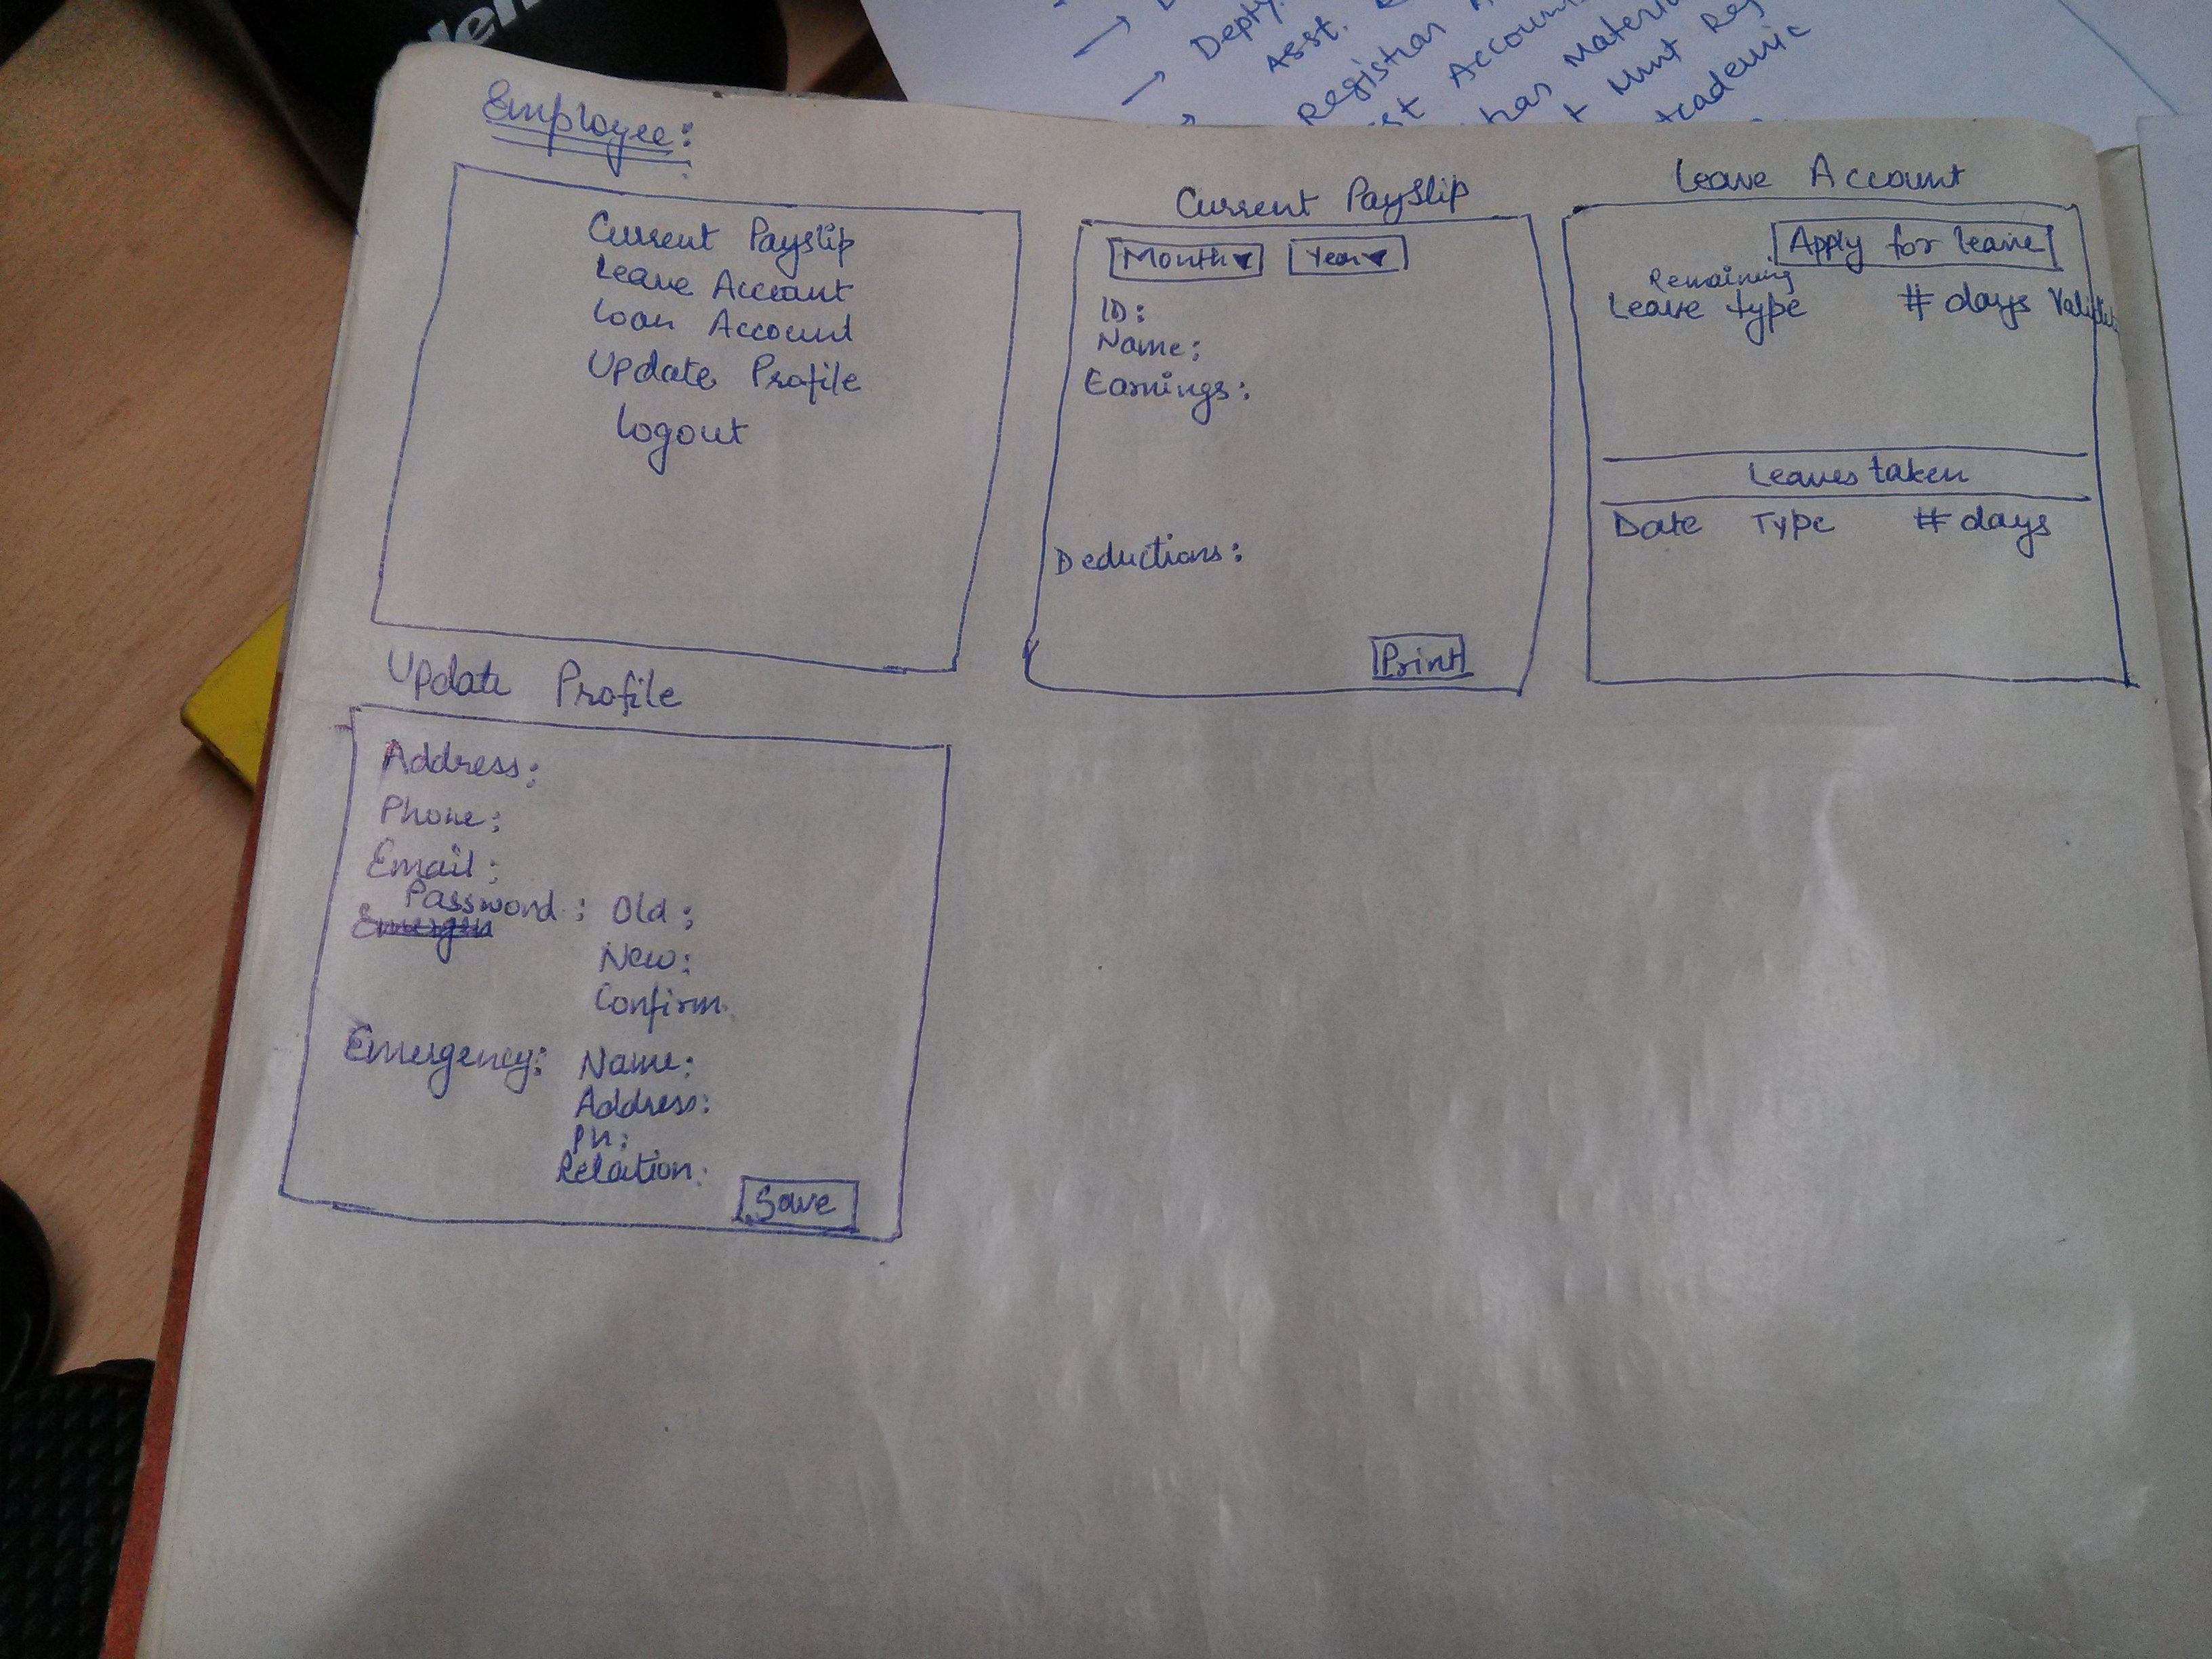 Deptly.
Asst.
Registrar
Accoun
has Materi
Mnt Reg
Academic
Employee:
Current Payslip
Leave Account
Loan Account
Update Profile
Logout
Current PaySlip
Month▼ Year▼
ID:
Name:
Earnings:
Deductions:
Print
Leave Account
Apply for leave
Remaining
Leave type # days Validity
Leaves taken
Date Type # days
Update Profile
Address:
Phone:
Email:
Password: Old:
Emergen
New:
Confirm
Emergency: Name:
Address:
Ph:
Relation:
Save